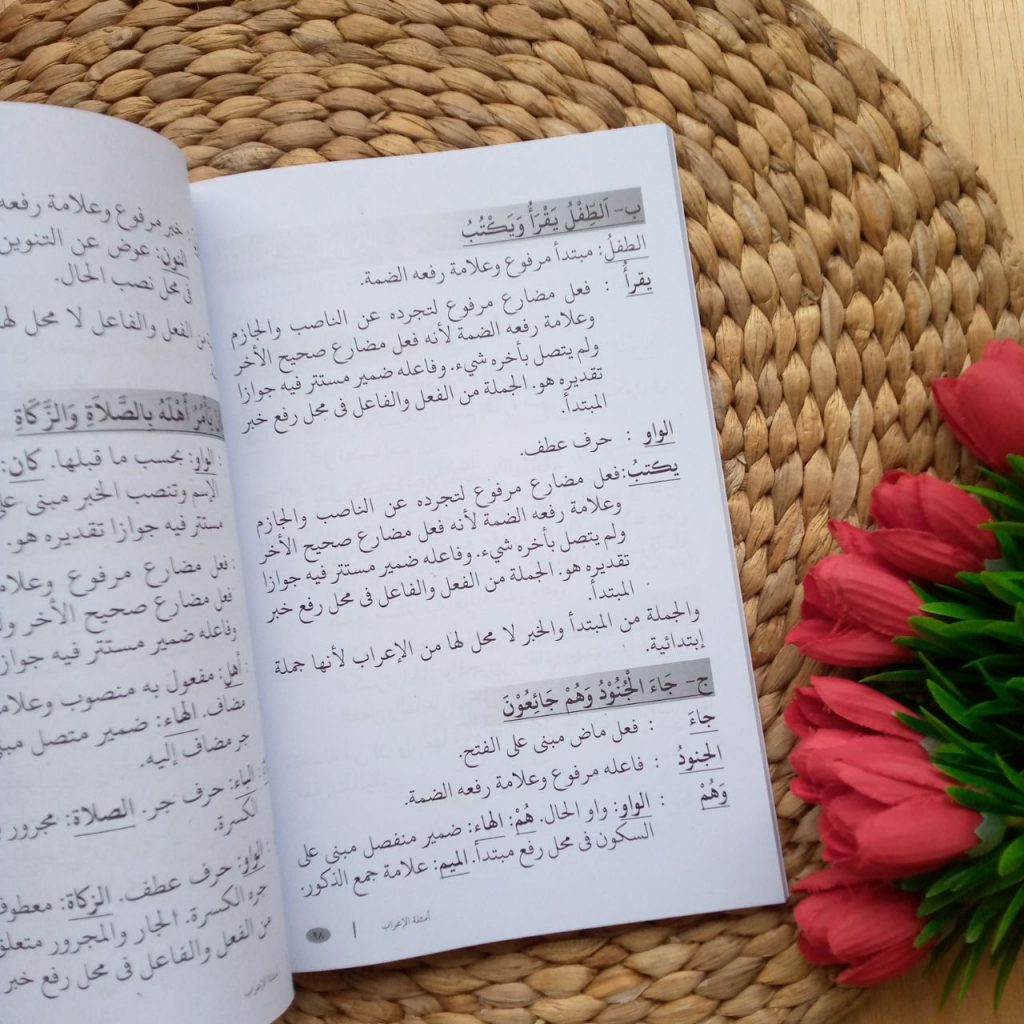 ب- اَلطِّفْلُ يَقْرَأُ وَيَكْتُبُ
الطفلُ: مبتدأ مرفوع وعلامة رفعه الضمة.
يقرأُ : فعل مضارع مرفوع لتجرده عن الناصب والجازم
وعلامة رفعه الضمة لأنه فعل مضارع صحيح الأخر
ولم يتصل بأخره شيء. وفاعله ضمير مستتر فيه جوازا
تقديره هو. الجملة من الفعل والفاعل فى محل رفع خبر
المبتدأ.
الواو : حرف عطف.
يكتبُ: فعل مضارع مرفوع لتجرده عن الناصب والجازم
وعلامة رفعه الضمة لأنه فعل مضارع صحيح الأخر
ولم يتصل بأخره شيء. وفاعله ضمير مستتر فيه جوازا
تقديره هو. الجملة من الفعل والفاعل فى محل رفع خبر
المبتدأ.
والجملة من المبتدأ والخبر لا محل لها من الإعراب لأنها جملة
إبتدائية.
ج- جَاءَ الْجُنُوْدُ وَهُمْ جَائِعُوْنَ
جاءَ : فعل ماض مبنى على الفتح.
الجنودُ : فاعله مرفوع وعلامة رفعه الضمة.
وَهُمْ : الواو: واو الحال. هُمْ: الهاء: ضمير منفصل مبنى على
السكون فى محل رفع مبتدأ. الميم: علامة جمع الذكور.
أمثلة الإعراب | ٩٨
خبر مرفوع وعلامة رفعه
النون: عوض عن التنوين
فى محل نصب الحال.
الفعل والفاعل لا محل لها
يَأْمُرُ أَهْلَهُ بِالصَّلَاةِ وَالزَّكَاةِ
الواو: بحسب ما قبلها. كان:
الإسم وتنصب الخبر مبنى
مستتر فيه جوازا تقديره هو.
فعل مضارع مرفوع
فعل مضارع صحيح الأخر
وفاعله ضمير مستتر فيه
أهل: مفعول به منصوب
مضاف. الهاء: ضمير متصل
جر مضاف إليه.
الباء: حرف جر. الصلاة: مجرور
الكسرة.
الواو: حرف عطف. الزكاة:
جره الكسرة. الجار والمجرور
من الفعل والفاعل فى محل رفع خبر